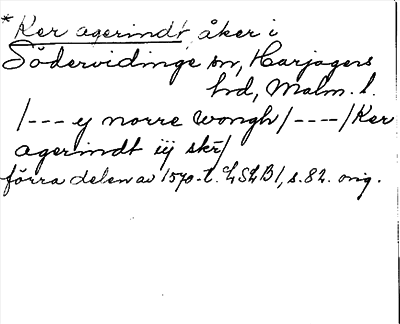 *Ker agerindt, åker i
Södervidinge sn, Harjagers
hd, Malm. l.
/--- ÿ norre wongh/----/Ker
agerindt iÿ skr̄/
förra delen av 1570-t. LSLB1, s. 82. orig.